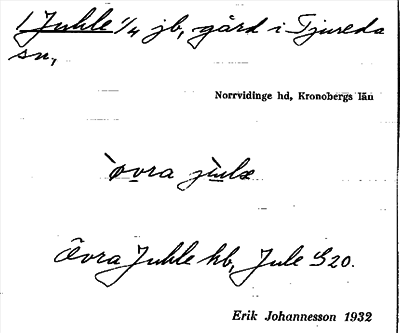 1 Juhle 1/4 jb, gård i Tjureda
sn,
Norrvidinge hd, Kronobergs län
`øvra jùlæ
Övra Juhle hb, Jule S20.
Erik Johannesson 1932